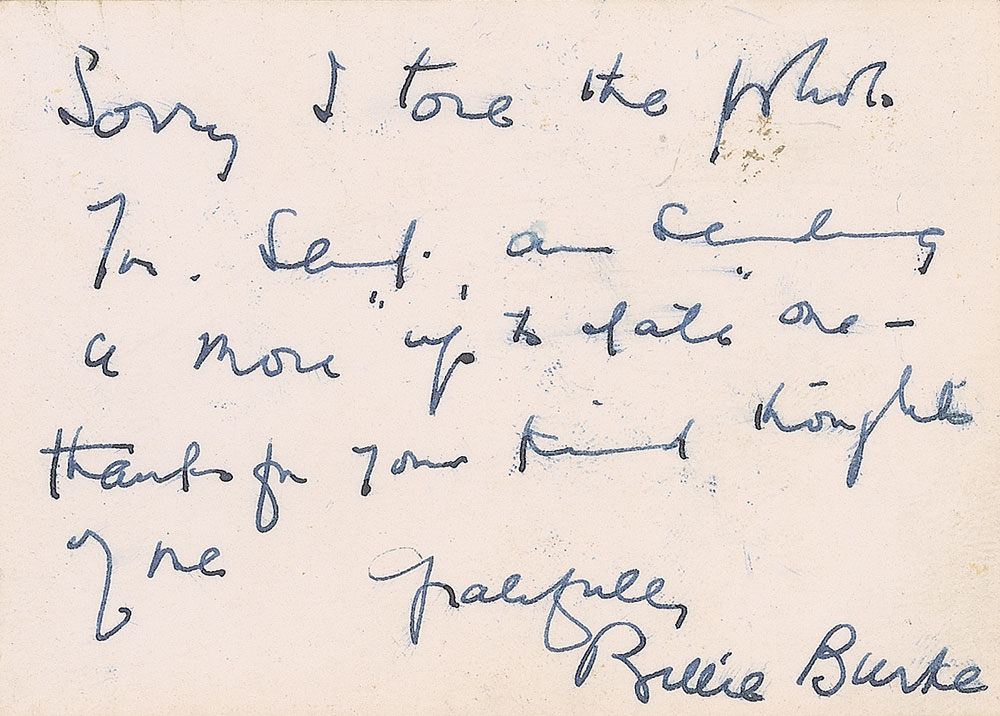 Sorry I tore the photo
You sent. am sending
a more "up to date" one -
thanks for your kind thoughts
of me
Gratefully,
Billie Burke